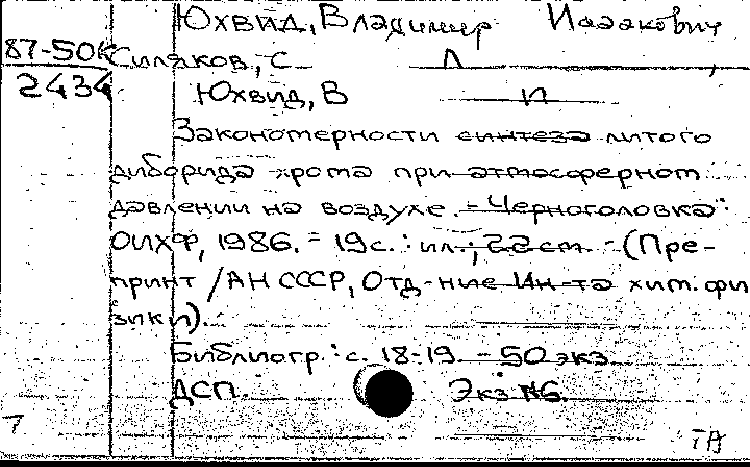 Юхвид, Владимир Исаакович
87-50К Силяков, С Л
2434 Юхвид, В И
Закономерности синтеза литого
диборида хрома при атмосферном
давлении на воздухе. - Черноголовка:
ОИХФ, 1986. - 19 с.: ил.; 22 см. - (Пре-
принт / АН СССР, Отд-ние Ин-та хим. фи
зики).
Библиогр.: с. 18-19. - 50 экз.
ДСП. Экз №6.
7